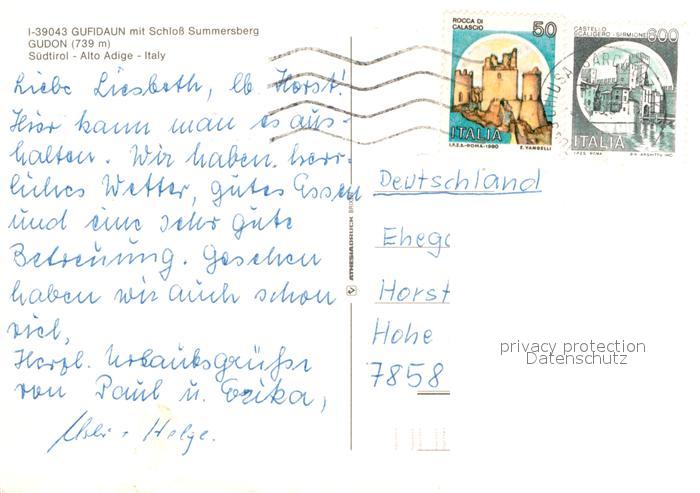 I-39043 GUFIDAUN mit Schloß Summersberg
GUDON (739 m)
Südtirol - Alto Adige - Italy
Liebe Liesbeth, lb. Horst!
Hier kann man es aus-
halten. Wir haben herr-
liches Wetter, gutes Essen
und eine sehr gute
Betreuung. Gesehen
haben wir auch schon
viel,
Herzl. Urlaubsgrüße
von Paul u. Erika,
Helge.
ROCCA DI
CALASCIO
50
ITALIA
I.P.Z.S.-ROMA-1980
E. VANGELLI
CASTELLO
SCALIGERO - SIRMIONE
600
ITALIA
I.P.Z.S. ROMA
ATHESIADRUCK
Deutschland
Eheg
Horst
Hohe
7858
privacy protection
Datenschutz